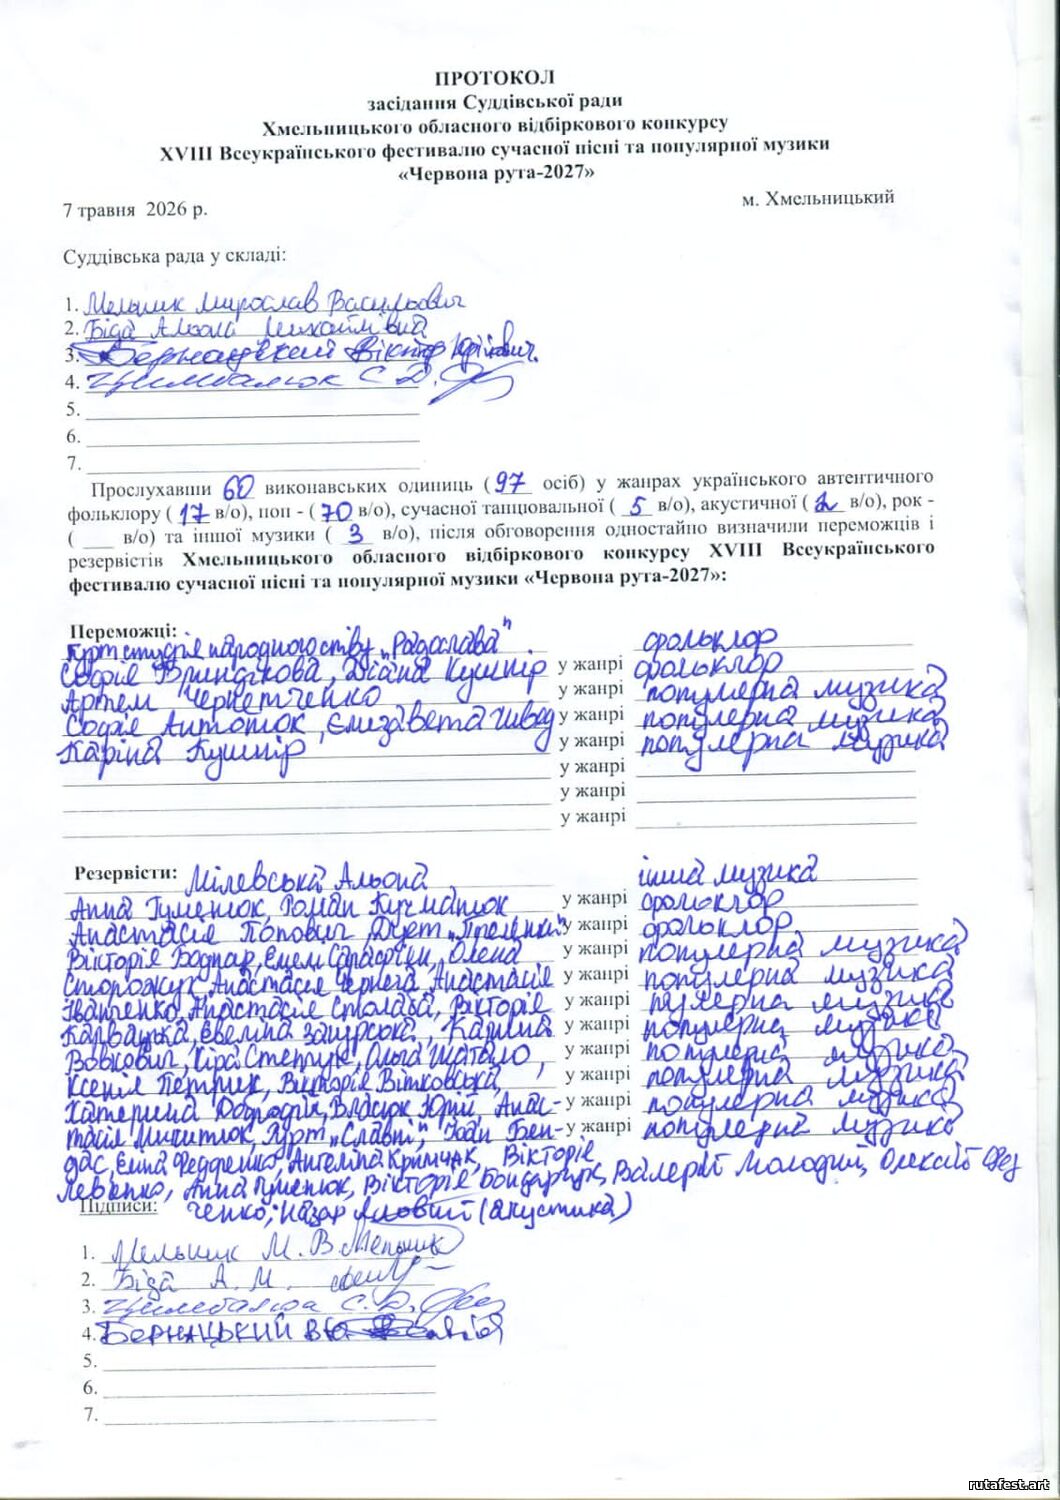 ПРОТОКОЛ
засідання Суддівської ради
Хмельницького обласного відбіркового конкурсу
XVIII Всеукраїнського фестивалю сучасної пісні та популярної музики
«Червона рута-2027»
7 травня 2026 р.
м. Хмельницький
Суддівська рада у складі:
1. Мельник Мирослав Васильович
2. Біда Альона Михайлівна
3. Бернацький Віктор Юрійович
4. Цимбалюк С. Д.
5.
6.
7.
Прослухавши 60 виконавських одиниць ( 97 осіб) у жанрах українського автентичного
фольклору ( 17 в/о), поп - ( 70 в/о), сучасної танцювальної ( 5 в/о), акустичної ( 2 в/о), рок -
( ___ в/о) та іншої музики ( 3 в/о), після обговорення одностайно визначили переможців і
резервістів Хмельницького обласного відбіркового конкурсу XVIII Всеукраїнського
фестивалю сучасної пісні та популярної музики «Червона рута-2027»:
Переможці:
Гурт студія народного співу „Радослава" фольклор
Софія Бриндікова, Діана Кушнір у жанрі фольклор
Артем Чернетченко у жанрі популярна музика
Софія Антонюк, Єлизавета Швед у жанрі популярна музика
Каріна Кушнір у жанрі популярна музика
у жанрі
у жанрі
у жанрі
Резервісти: Мілевська Альона інша музика
Анна Гуменюк, Роман Кучманюк у жанрі фольклор
Анастасія Попович, Гурт у жанрі фольклор
Вікторія Боднар, Олена у жанрі популярна музика
Сторожук, Анастасія Чернега, Анастасія у жанрі популярна музика
Іванченко, Анастасія Столаба, Вікторія у жанрі пулярна музика
Калвацька, Евеліна Загурська, Карина у жанрі популярна музика
Вовкович, Кіра Степчук, Ольга Шатало, у жанрі популярна музика
Ксенія Петрик, Вікторія Вітковська, у жанрі популярна музика
Катерина Власюк Юрій, Анас- у жанрі популярна музика
тасія Микитюк, Гурт „Славні", Іоан Бен- у жанрі популярна музика
дас, Еліна Федченко, Ангеліна Кримчак, Вікторія
Левенко, Анна Гуменюк, Вікторія Бондарчук, Валерій Молодий, Олексій
ченко; Назар Яловий (акустика)
Підписи:
1. Мельник М. В.
2. Біда А. М.
3. Цимбалюк С. Д.
4. БЕРНАЦЬКИЙ
5.
6.
7.
rutafest.art